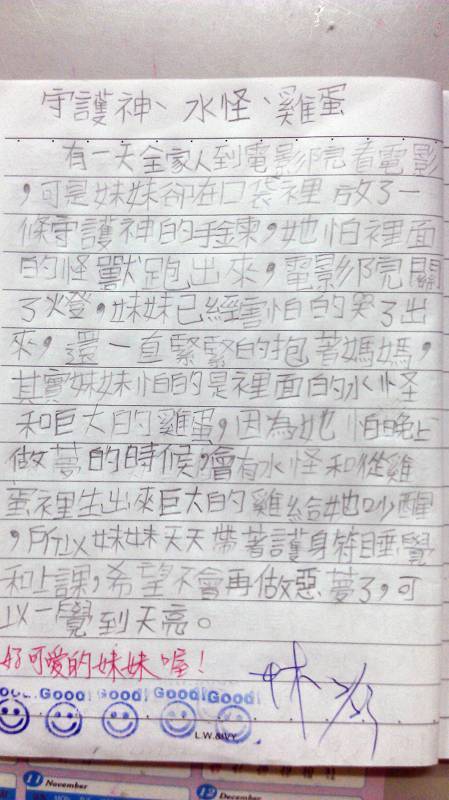 守護神、水怪、雞蛋
有一天全家人到電影院看電影
,可是妹妹卻在口袋裡放了一
條守護神的手鍊,她怕裡面
的怪獸跑出來,電影院關
了燈,妹妹已經害怕的哭了出
來,還一直緊緊的抱著媽媽,
其實妹妹怕的是裡面的水怪
和巨大的雞蛋,因為她怕晚上
做夢的時候,會有水怪和從雞
蛋裡生出來巨大的雞給她吵醒
,所以妹妹天天帶著護身符睡覺
和上課,希望不會再做惡夢了,可
以一覺到天亮。
好可愛的妹妹喔!
Good! Good! Good! Good!
L.W.&IVY
11 November
12 December